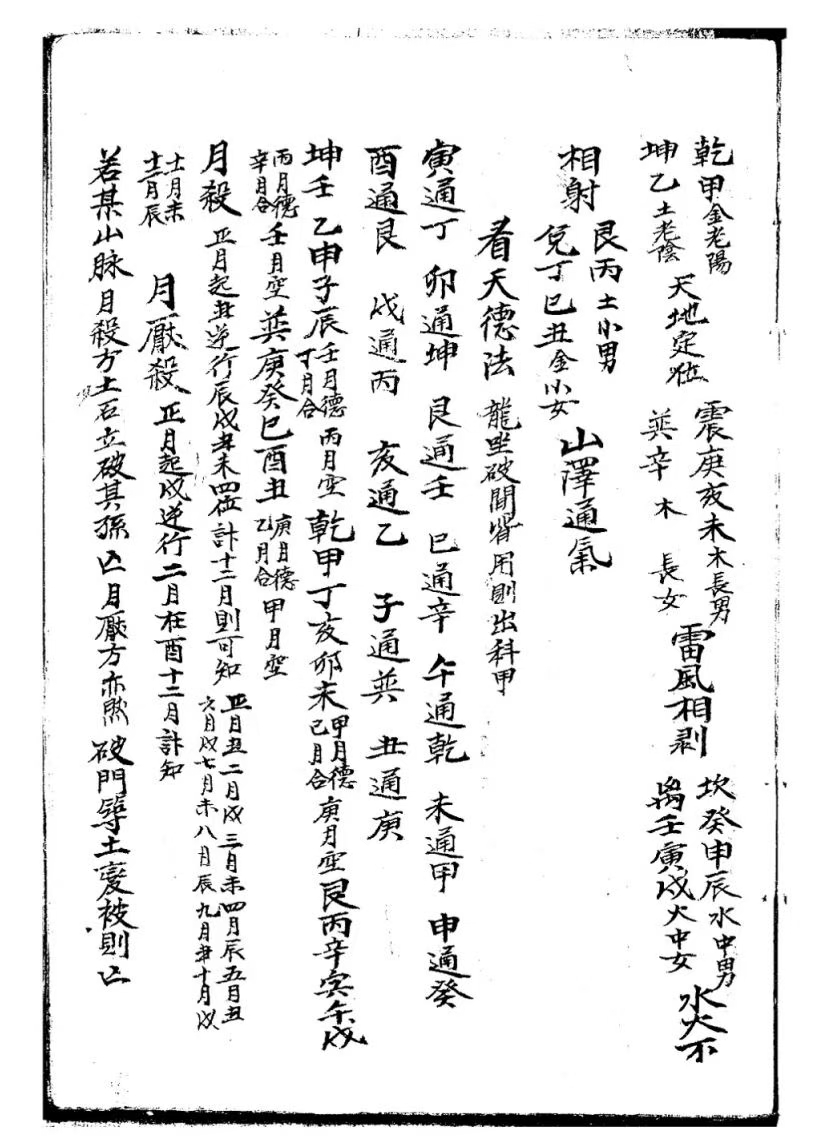 乾甲金老陽
坤乙土老陰
天地定位
震庚亥未木長男
巽辛木長女
雷風相剥
坎癸申辰水中男
离壬寅戌火中女
水火不
相射
艮丙土小男
兌丁巳丑金小女
山澤通氣
看天德法 龍坐破開皆用則出科甲
寅通丁 卯通坤 艮通壬 巳通辛 午通乾 未通甲 申通癸
酉通艮 戌通丙 亥通乙 子通巽 丑通庚
坤壬乙申子辰壬月德丁月合丙月空乾甲丁亥卯未甲月德己月合庚月空艮丙辛寅午戌
丙月德辛月合壬月空巽庚癸巳酉丑庚月德乙月合甲月空
月殺 正月起丑逆行辰戌丑未四位計十二月則可知 正月丑二月戌三月未四月辰五月丑六月戌七月未八月辰九月丑十月戌
十一月未十二月辰 月厭殺 正月起戌逆行二月在酉十二月計知
若某山脉月殺方土石立破其孫亡月厭方亦然破門擇土変被則亡